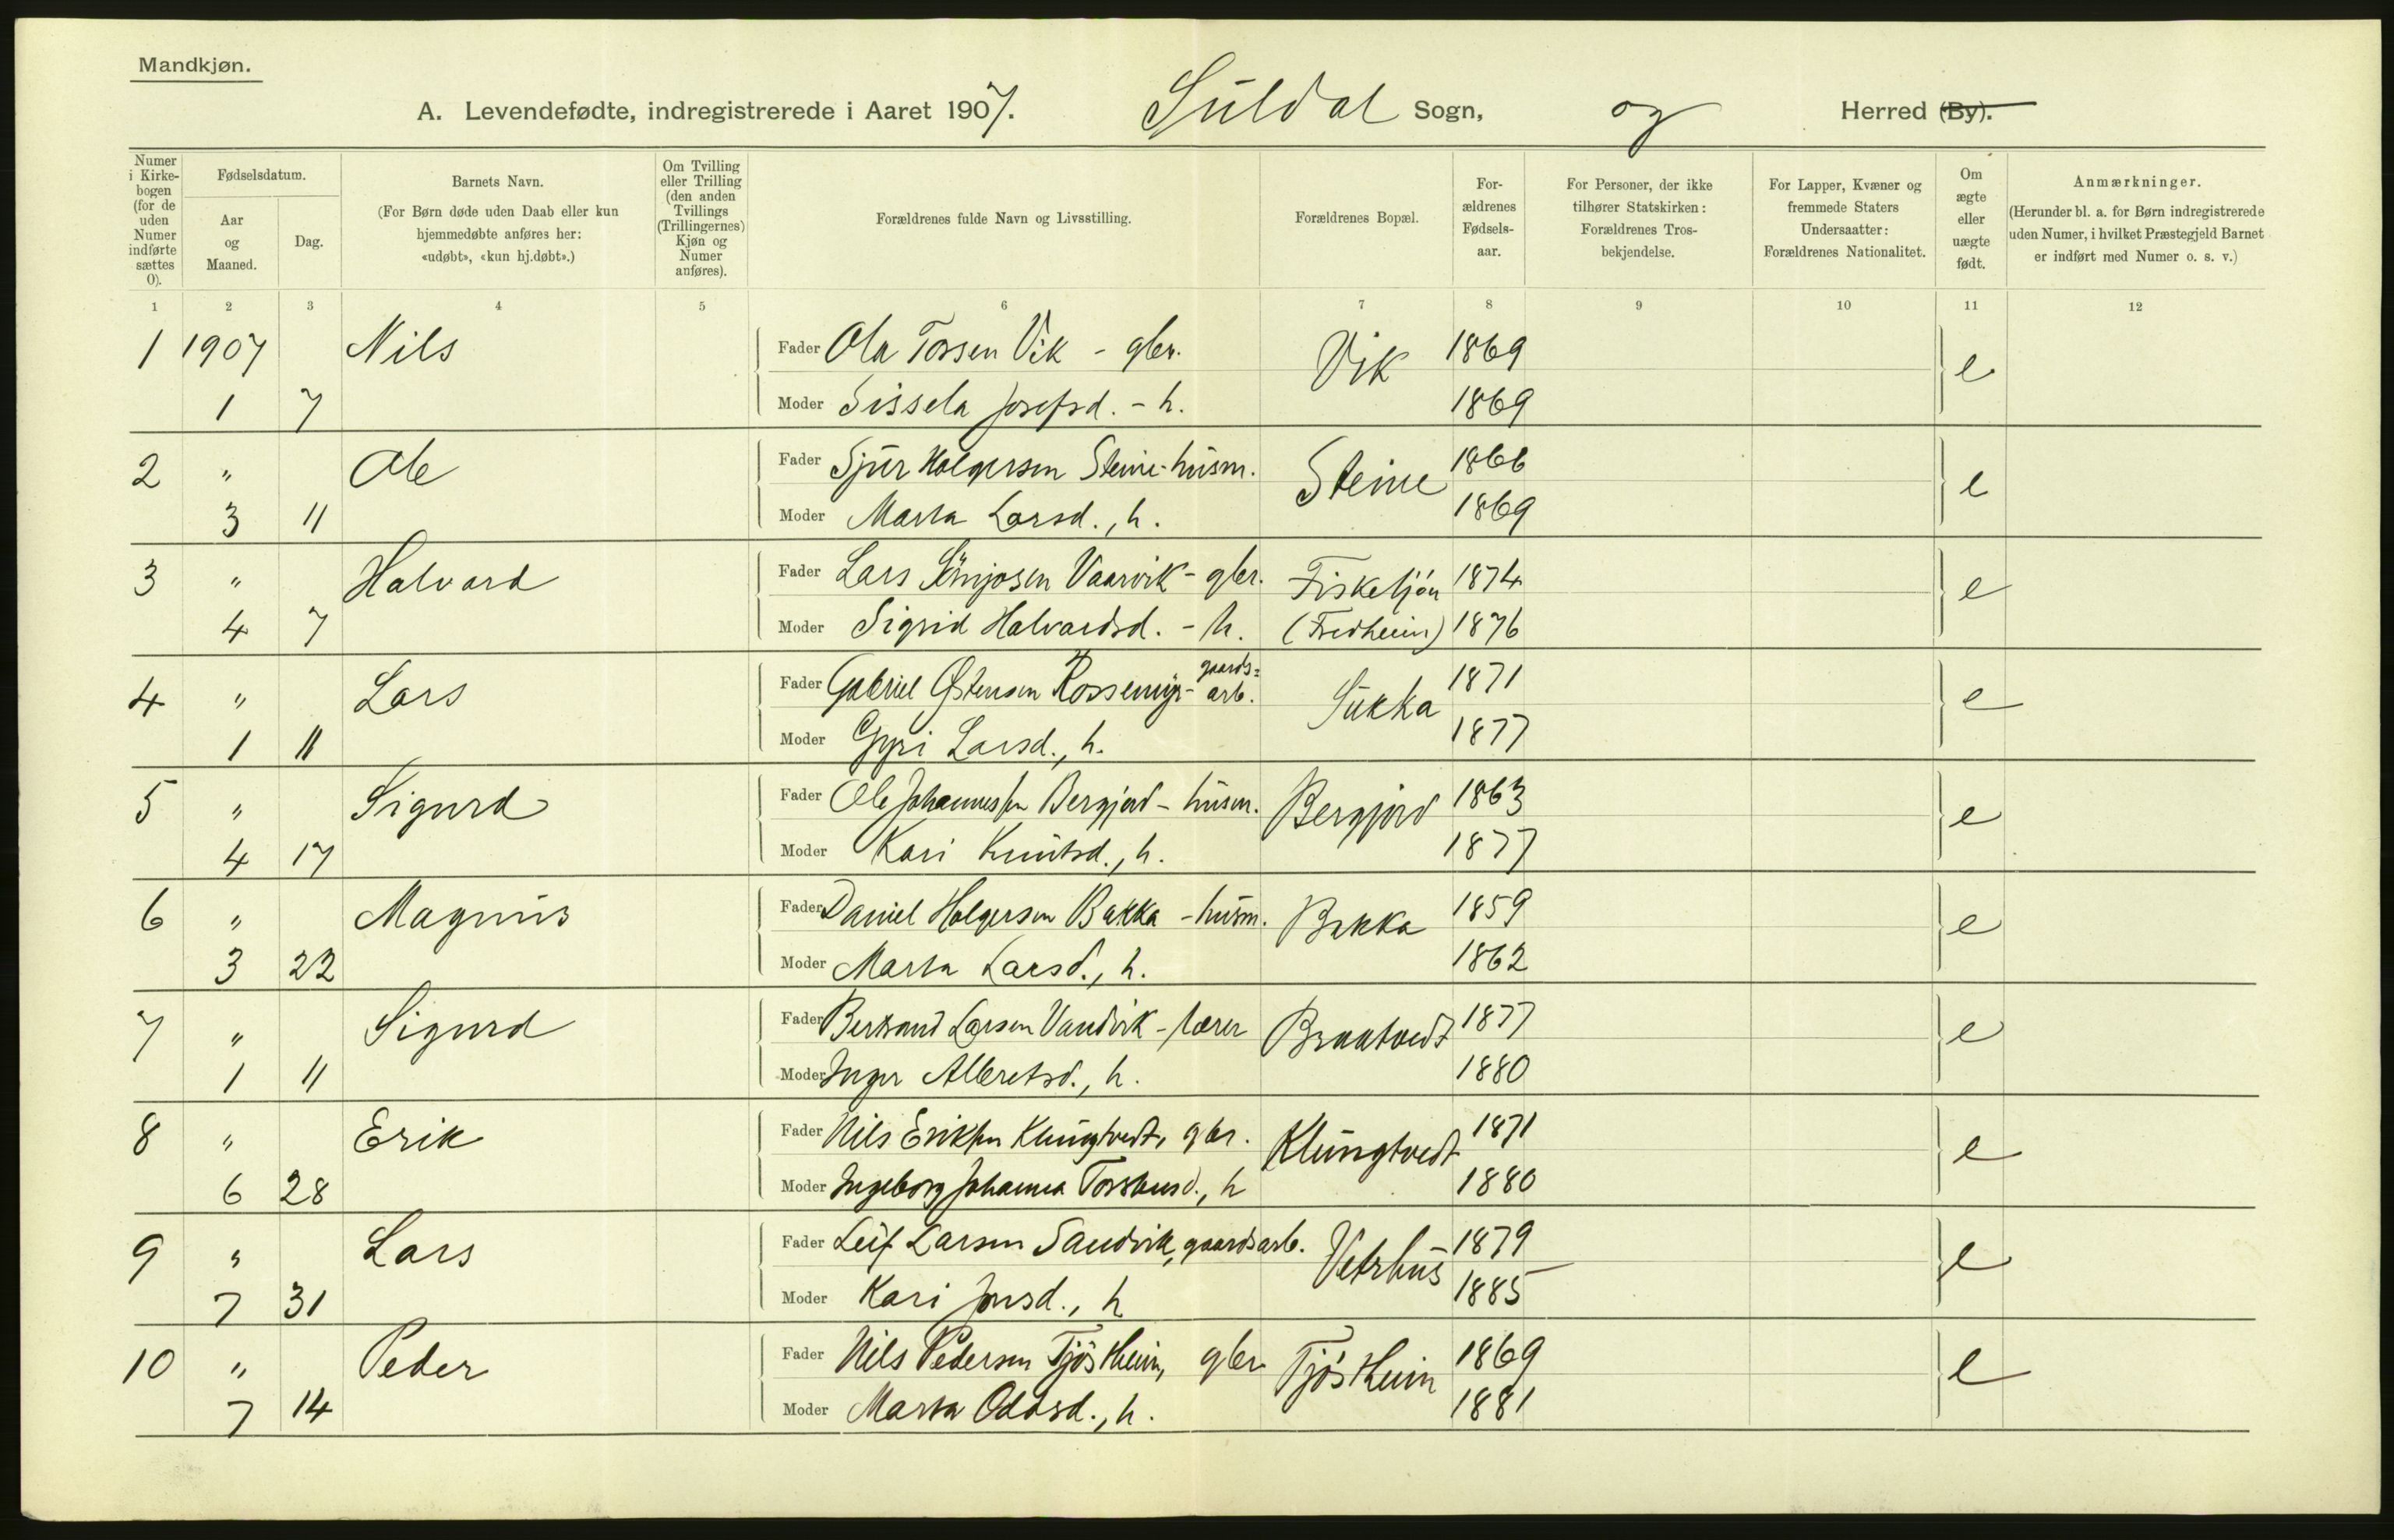 Mandkjøn.
A. Levendefødte, indregistrerede i Aaret 1907. Suldal Sogn, og Herred (By).
Numer i Kirke-bogen (for de uden Numer indførte sættes 0).
Fødselsdatum.
Aar og Maaned.
Dag.
Barnets Navn.
(For Børn døde uden Daab eller kun hjemmedøbte anføres her: «udøbt», «kun hj.døbt».)
Om Tvilling eller Trilling (den anden Tvillings (Trillingernes) Kjøn og Numer anføres).
Forældrenes fulde Navn og Livsstilling.
Forældrenes Bopæl.
For-ældrenes Fødsels-aar.
For Personer, der ikke tilhører Statskirken: Forældrenes Tros-bekjendelse.
For Lapper, Kvæner og fremmede Staters Undersaatter: Forældrenes Nationalitet.
Om ægte eller uægte født.
Anmærkninger.
(Herunder bl. a. for Børn indregistrerede uden Numer, i hvilket Præstegjeld Barnet er indført med Numer o. s. v.)
1 2 3 4 5 6 7 8 9 10 11 12
1 1907 Nils Fader Ola Torsen Vik - gbr. Vik 1869 e
1 7 Moder Sissela Josefsd. - h. 1869
2 " Ole Fader Sjur Holgersen Steine - husm. Steine 1866 e
3 11 Moder Marta Larsd., h. 1869
3 " Halvard Fader Lars Vaarvik - gbr. Fisketjøn 1874 e
4 7 Moder Sigrid Halvardsd. - h. (Fredheim) 1876
4 " Lars Fader Gabriel Østensen Rossemyr - gaards=arb. Sukka 1871 e
1 11 Moder Gyri Larsd., h. 1877
5 " Sigurd Fader Ole Johannessen Bergjord - husm. Bergjord 1863 e
4 17 Moder Kari Knutsd., h. 1877
6 " Magnus Fader Daniel Holgersen Bakka - husm. Bakka 1859 e
3 22 Moder Marta Larsd., h. 1862
7 " Sigurd Fader Bertrand Larsen Vandvik - lærer Braatvedt 1877 e
1 11 Moder Inger Albretsd., h. 1880
8 " Erik Fader Nils Eriksen Klungtvedt, gbr. Klungtvedt 1871 e
6 28 Moder Ingeborg Johanna Torsteinsd., h 1880
9 " Lars Fader Leif Larsen Sandvik, gaardsarb. Vetrhus 1879 e
7 31 Moder Kari Jonsd., h 1885
10 " Peder Fader Nils Pedersen Tjøstheim, gbr Tjøstheim 1869 e
7 14 Moder Marta Oddsd., h. 1881